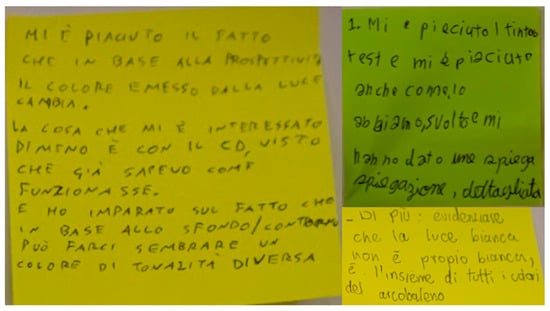 MI È PIACIUTO IL FATTO
CHE IN BASE ALLA PROSPETTIVA
IL COLORE EMESSO DALLA LUCE
CAMBIA.
LA COSA CHE MI È INTERESSATO
DI MENO È CON IL CD, VISTO
CHE GIÀ SAPEVO COME
FUNZIONASSE.
E HO IMPARATO SUL FATTO CHE
IN BASE ALLO SFONDO/CONTORNO
PUÒ FARCI SEMBRARE UN
COLORE DI TONALITÀ DIVERSA
1. Mi è piaciuto l
test e mi è piaciuto
anche come lo
abbiamo svolto e mi
hanno dato une spiega
spiegazione, dettagliata
- DI PIÙ: evidenziare
che la luce bianca
non è propio bianca,
è l'insieme di tutti i colori
del arcobaleno